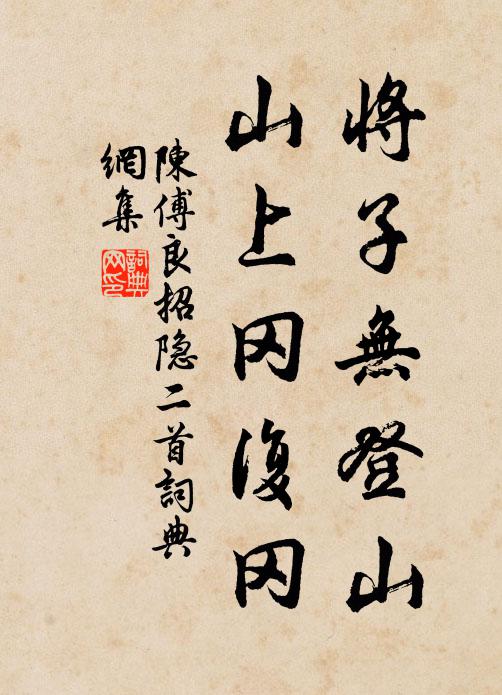 將子無登山
山上冈復冈
陳傅良招隐二首詞典
網集
詞典
网印